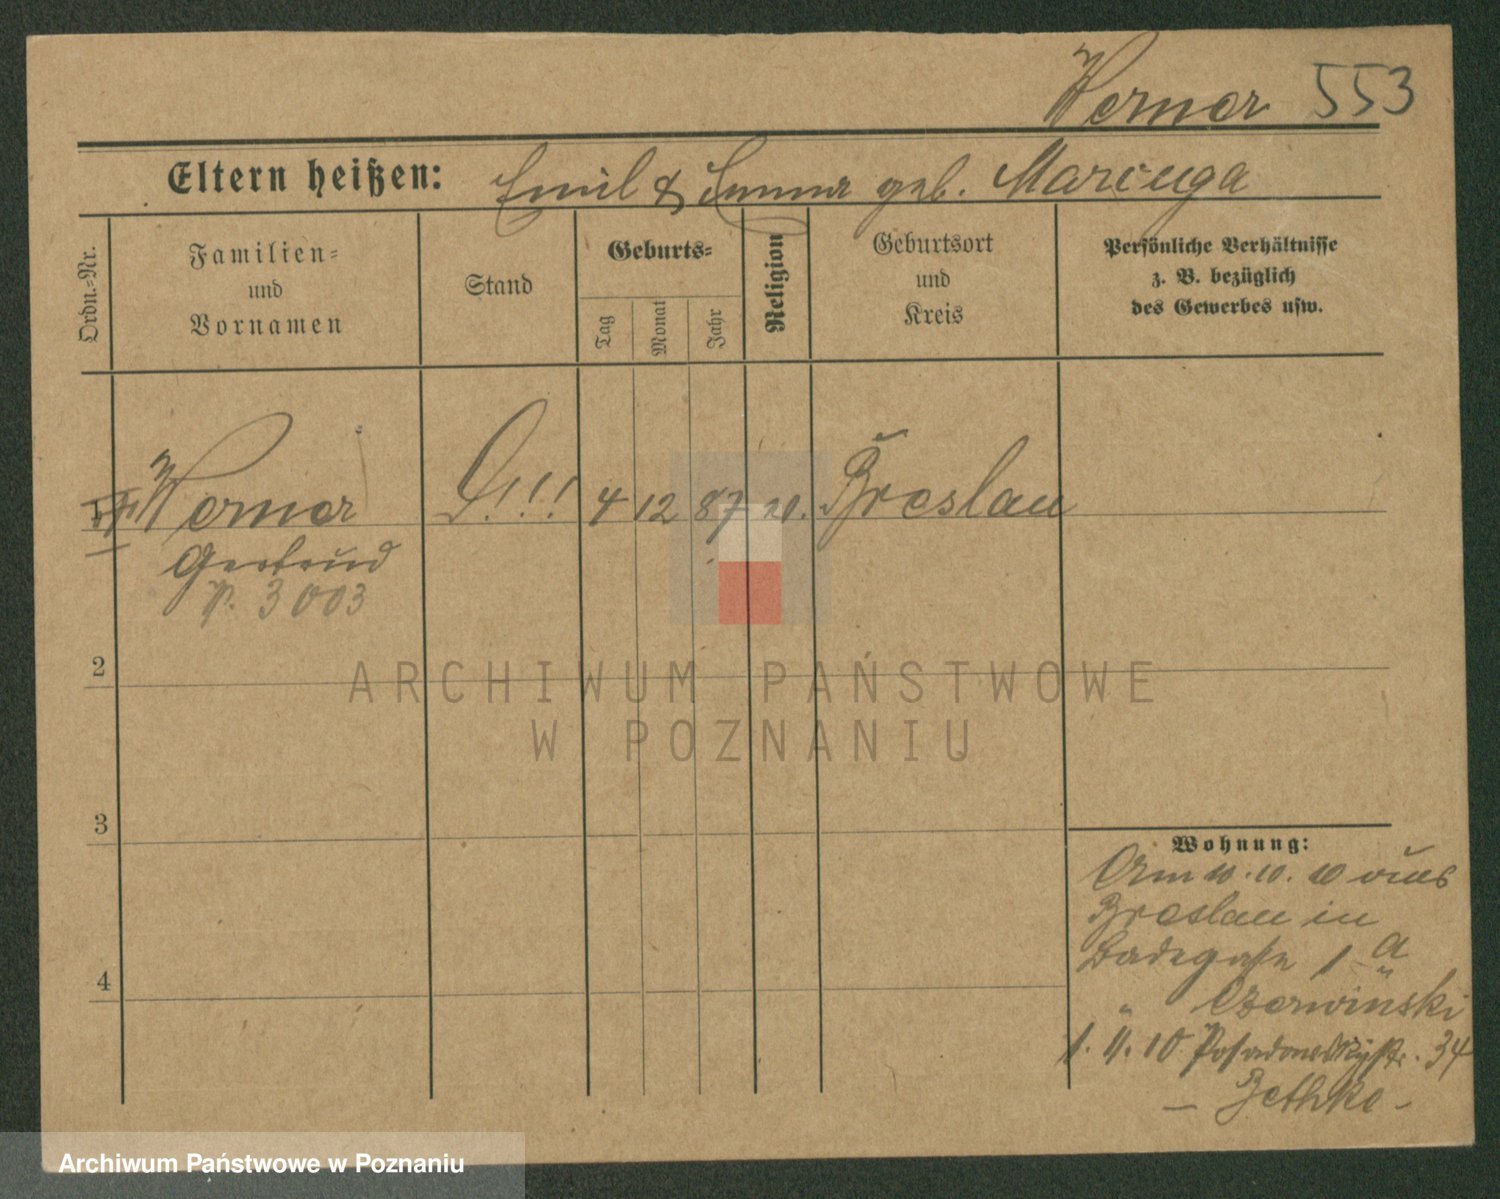 Werner 553
Eltern heißen: Emil & Emma geb. Marciuga
Ordn.-Nr.
Familien-
und
Vornamen
Stand
Geburts-
Tag
Monat
Jahr
Religion
Geburtsort
und
Kreis
Persönliche Verhältnisse
z. B. bezüglich
des Gewerbes usw.
1 Werner L!!! 4 12 87 Breslau
Gertrud
P. 3003
2
ARCHIWUM PAŃSTWOWE
W POZNANIU
3
4
Wohnung:
Am 10. 10. 10 aus
Breslau in
Badegasse 1 a
" Czerwinski
1. 11. 10 Posadowskystr. 34
- Bethke -
Archiwum Państwowe w Poznaniu